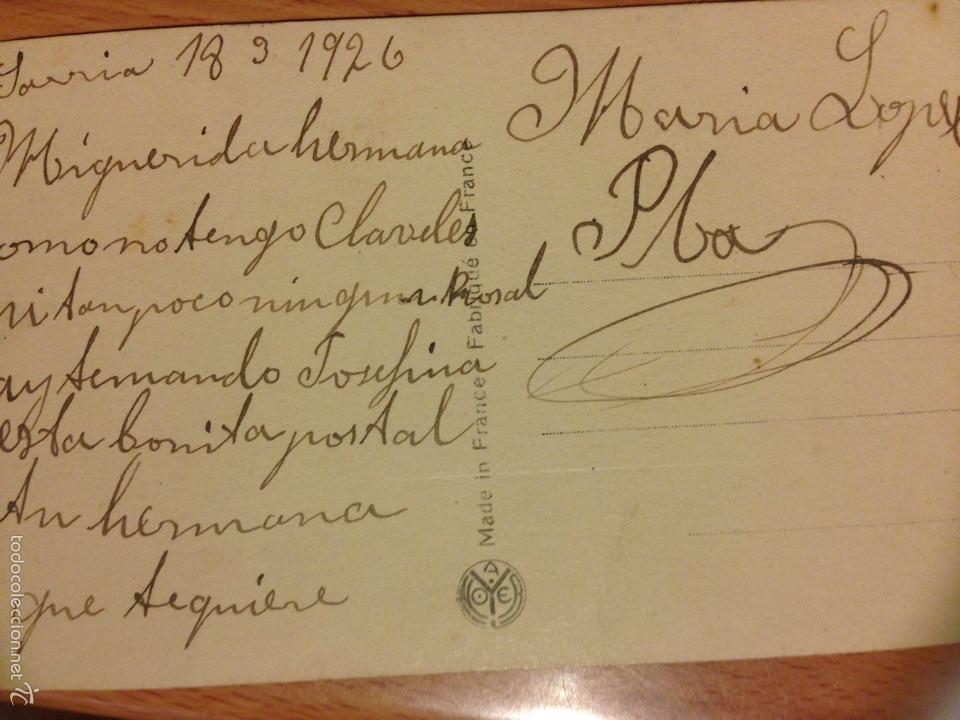 Sarria 18 3 1926
Miquerida hermana
omo no tengo Claveles
ni tanpoco ningun Rosal
ay temando Josefina
esta bonita postal
tu hermana
que tequiere
Maria Lopez
Pla
Made in France Fabriqué en France
todocoleccion.net
tc